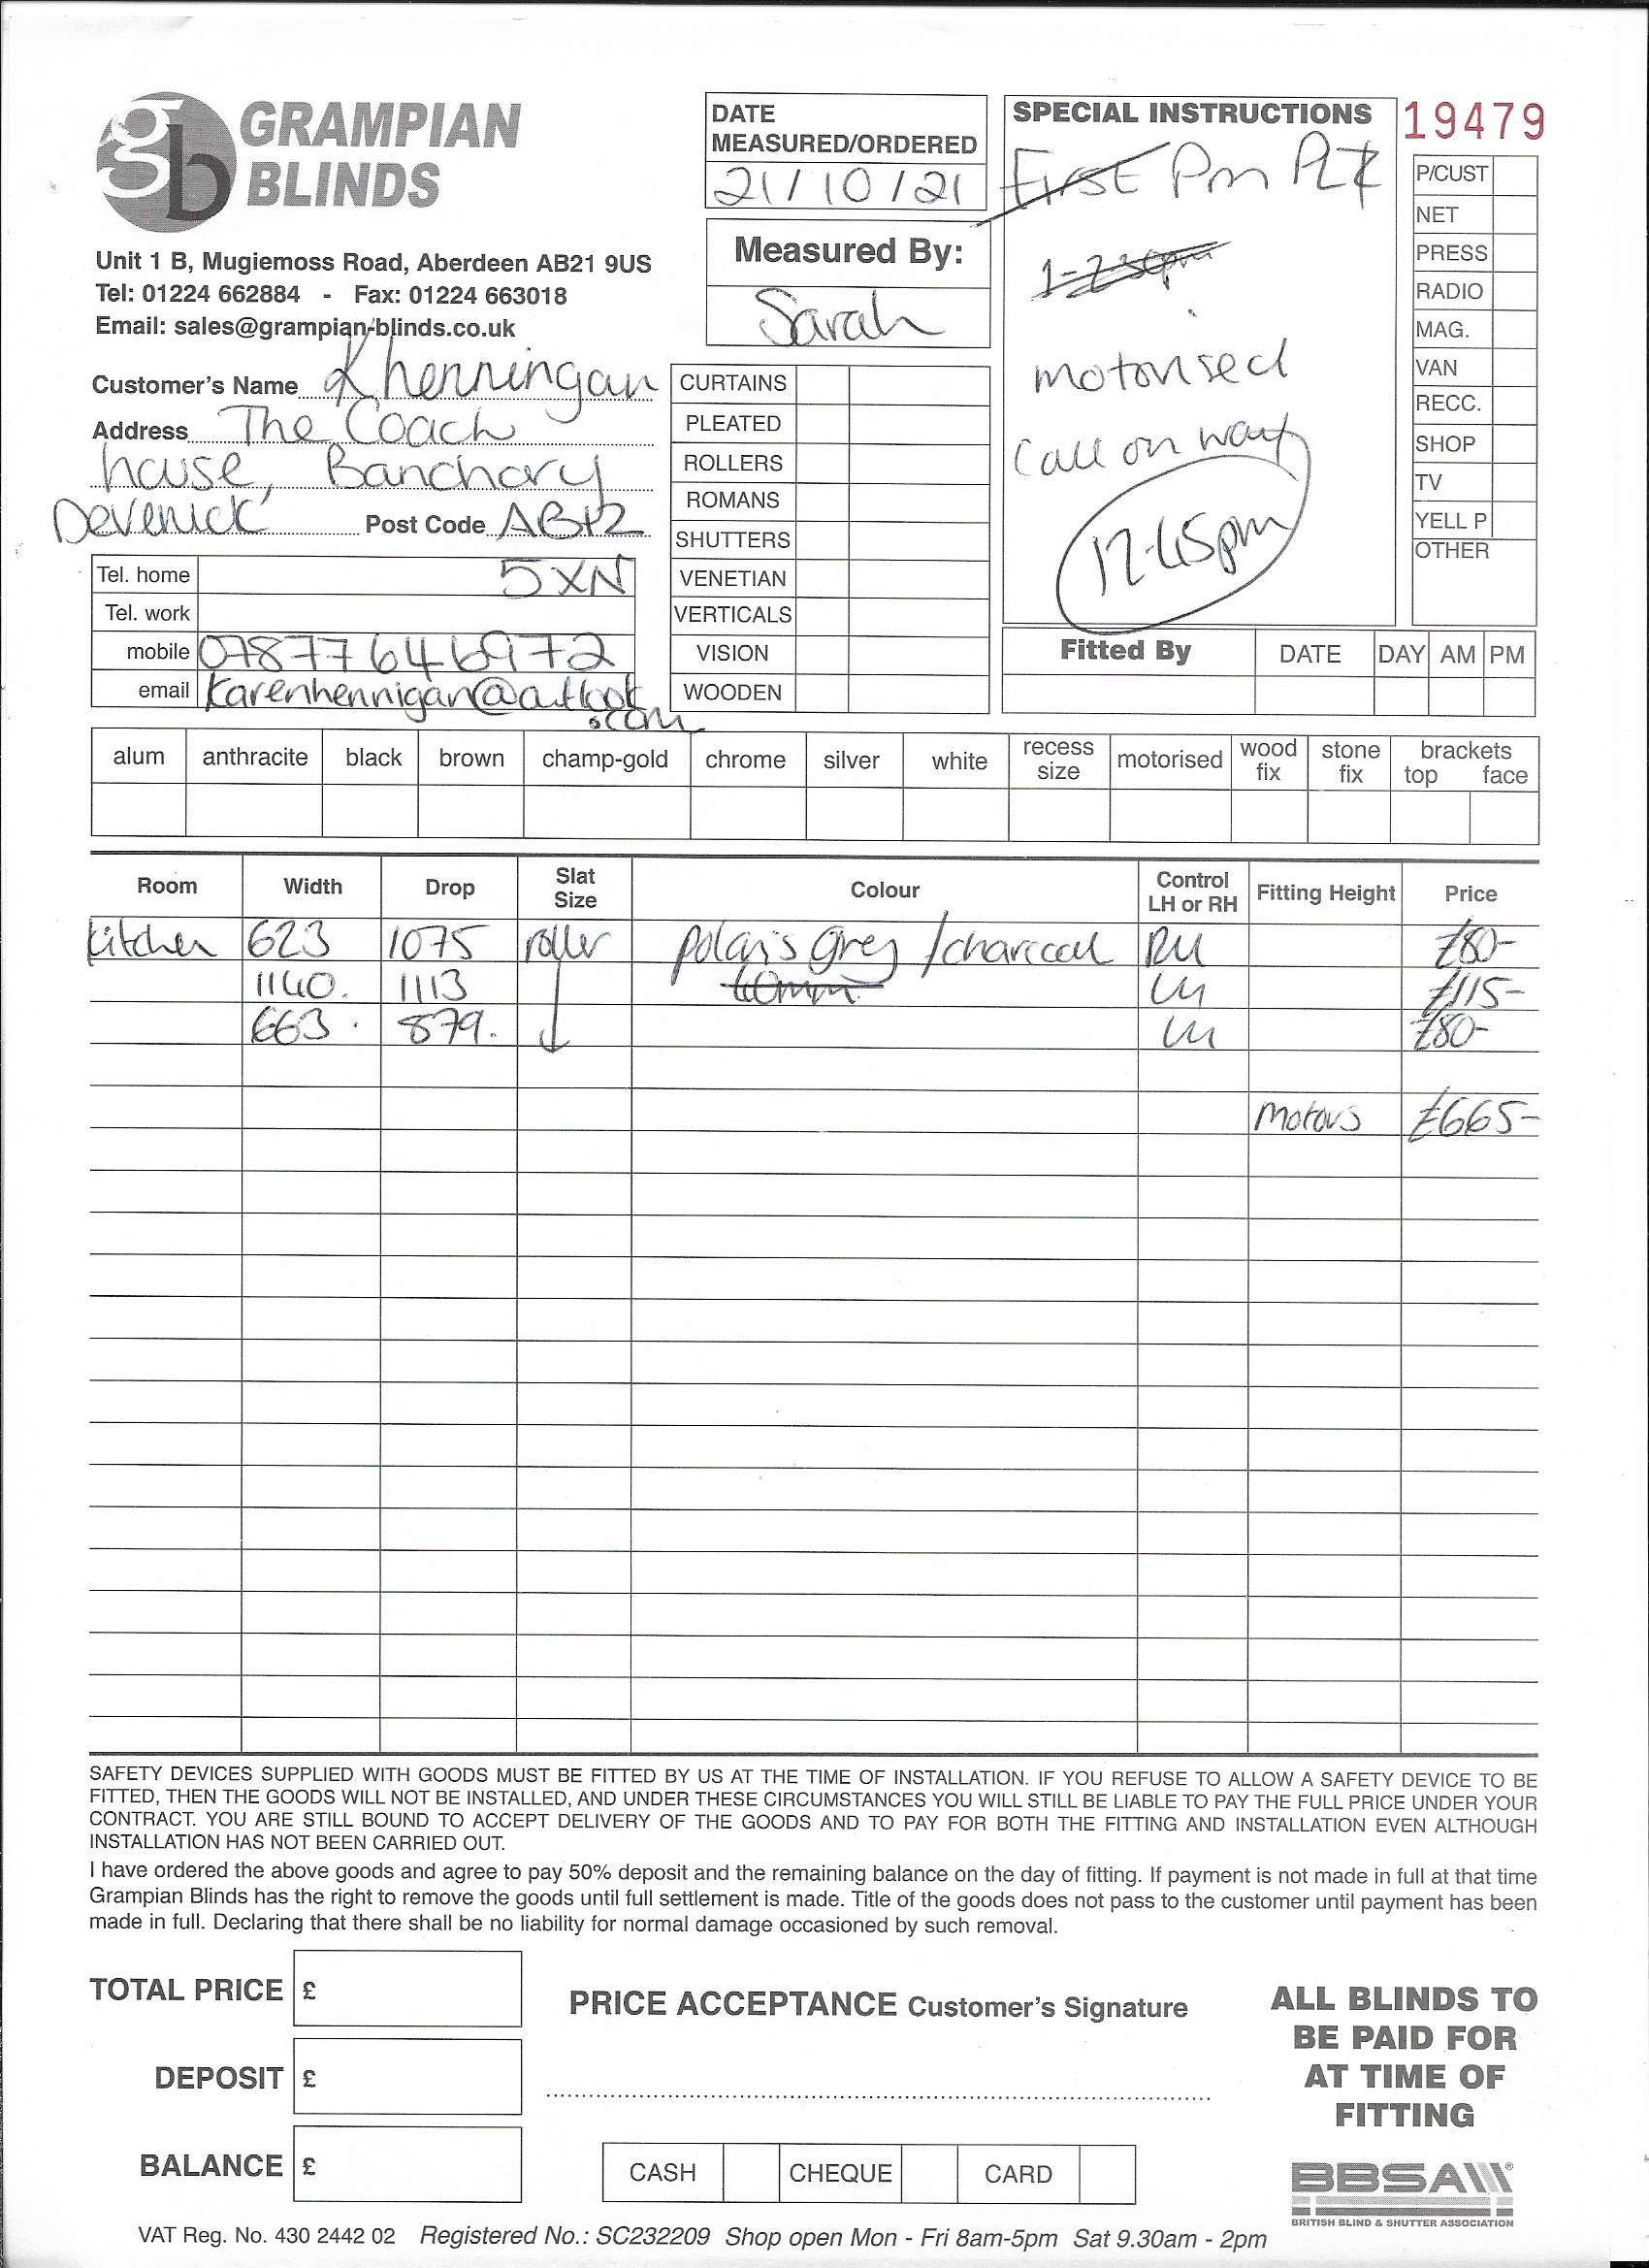 GRAMPIAN
BLINDS
Unit 1 B, Mugiemoss Road, Aberdeen AB21 9US
Tel: 01224 662884 - Fax: 01224 663018
Email: sales@grampian-blinds.co.uk
DATE
MEASURED/ORDERED
21/10/21
Measured By:
Sarah
SPECIAL INSTRUCTIONS
First Pm PLZ
motorised
Call on way
12-45pm
19479
P/CUST
NET
PRESS
RADIO
MAG.
VAN
RECC.
SHOP
TV
YELL P
OTHER
Customer's Name K henningan
Address The Coach
house, Banchory
Devenick Post Code AB12
5XN
Tel. home
Tel. work
mobile 07877646972
email karenhennigan@outlook
.com
CURTAINS
PLEATED
ROLLERS
ROMANS
SHUTTERS
VENETIAN
VERTICALS
VISION
WOODEN
Fitted By DATE DAY AM PM
alum anthracite black brown champ-gold chrome silver white recess size motorised wood fix stone fix brackets top face
Room Width Drop Slat Size Colour Control LH or RH Fitting Height Price
kitchen 623 1075 roller polaris grey /charcoal RH £80-
1140. 1113 40mm LH £115-
663. 879. LH £80-
Motors £665-
SAFETY DEVICES SUPPLIED WITH GOODS MUST BE FITTED BY US AT THE TIME OF INSTALLATION. IF YOU REFUSE TO ALLOW A SAFETY DEVICE TO BE
FITTED, THEN THE GOODS WILL NOT BE INSTALLED, AND UNDER THESE CIRCUMSTANCES YOU WILL STILL BE LIABLE TO PAY THE FULL PRICE UNDER YOUR
CONTRACT. YOU ARE STILL BOUND TO ACCEPT DELIVERY OF THE GOODS AND TO PAY FOR BOTH THE FITTING AND INSTALLATION EVEN ALTHOUGH
INSTALLATION HAS NOT BEEN CARRIED OUT.
I have ordered the above goods and agree to pay 50% deposit and the remaining balance on the day of fitting. If payment is not made in full at that time
Grampian Blinds has the right to remove the goods until full settlement is made. Title of the goods does not pass to the customer until payment has been
made in full. Declaring that there shall be no liability for normal damage occasioned by such removal.
TOTAL PRICE £
DEPOSIT £
BALANCE £
PRICE ACCEPTANCE Customer's Signature
CASH CHEQUE CARD
ALL BLINDS TO
BE PAID FOR
AT TIME OF
FITTING
BBSA
BRITISH BLIND & SHUTTER ASSOCIATION
VAT Reg. No. 430 2442 02 Registered No.: SC232209 Shop open Mon - Fri 8am-5pm Sat 9.30am - 2pm